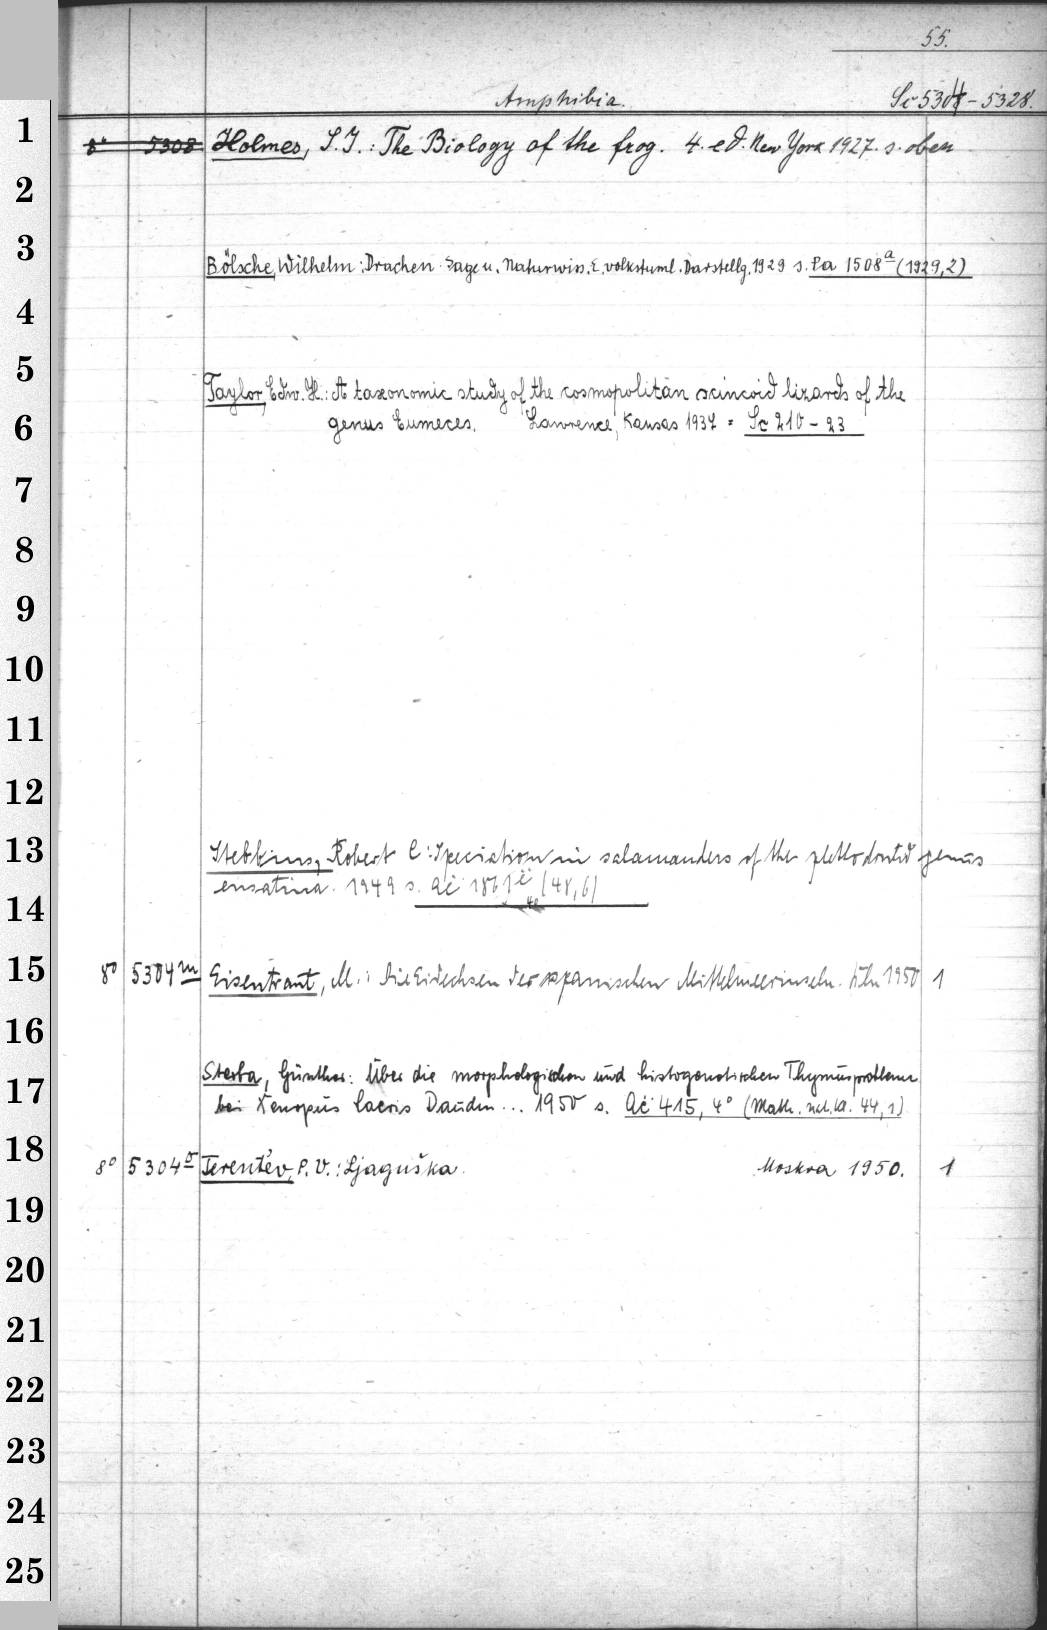 55.
Amphibia. Sc 5304 - 5328.
1
8° 5308 Holmes, S. J.: The Biology of the frog. 4. ed. New York 1927. s. oben
2
3
Bölsche, Wilhelm: Drachen. Sage u. Naturwiss. E. volkstüml. Darstellg. 1929 s. La 1508a (1929,2)
4
5
Taylor, Edw. H.: A taxonomic study of the cosmopolitan scincoid lizards of the
6
genus Eumeces. Lawrence, Kansas 1937 = Sc 210 - 23
7
8
9
10
11
12
13
Stebbins, Robert C: Speciation in salamanders of the plethodontid genus
ensatina. 1949 s. (48,6)
14
15
8° 5304m Eisentraut, M.: Die Eidechsen der spanischen Mittelmeerinseln. Bln 1950 1
16
17
Sterba, Günther: Über die morphologischen und histogenetischen Thymusprobleme
bei Xenopus laevis Daudin... 1950 s. Ac 415, 4° (Math. nat. Kl. 44,1)
18
8° 5304 Terentév, P. V.: Ljaguška. Moskva 1950. 1
19
20
21
22
23
24
25